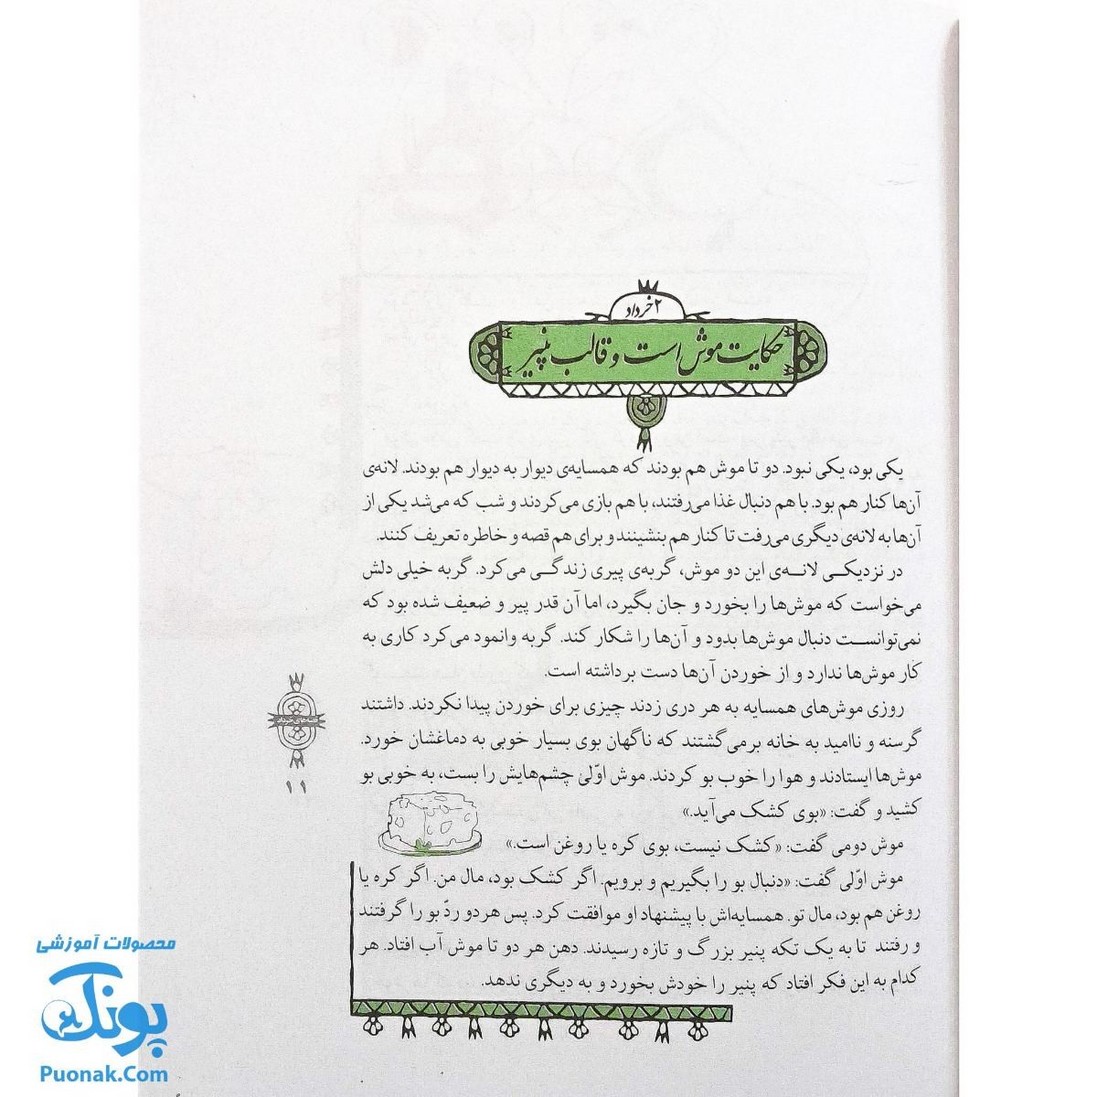 ۲ خرداد
حکایت موش است و قالب پنیر
یکی بود، یکی نبود. دو تا موش هم بودند که همسایه‌ی دیوار به دیوار هم بودند. لانه‌ی
آن‌ها کنار هم بود. با هم دنبال غذا می‌رفتند، با هم بازی می‌کردند و شب که می‌شد یکی از
آن‌ها به لانه‌ی دیگری می‌رفت تا کنار هم بنشینند و برای هم قصه و خاطره تعریف کنند.
در نزدیکی لانه‌ی این دو موش، گربه‌ی پیری زندگی می‌کرد. گربه خیلی دلش
می‌خواست که موش‌ها را بخورد و جان بگیرد، اما آن قدر پیر و ضعیف شده بود که
نمی‌توانست دنبال موش‌ها بدود و آن‌ها را شکار کند. گربه وانمود می‌کرد کاری به
کار موش‌ها ندارد و از خوردن آن‌ها دست برداشته است.
روزی موش‌های همسایه به هر دری زدند چیزی برای خوردن پیدا نکردند. داشتند
گرسنه و ناامید به خانه برمی‌گشتند که ناگهان بوی بسیار خوبی به دماغشان خورد.
موش‌ها ایستادند و هوا را خوب بو کردند. موش اوّلی چشم‌هایش را بست، به خوبی بو
کشید و گفت: «بوی کشک می‌آید.»
موش دومی گفت: «کشک نیست، بوی کره یا روغن است.»
موش اوّلی گفت: «دنبال بو را بگیریم و برویم. اگر کشک بود، مال من. اگر کره یا
روغن هم بود، مال تو. همسایه‌اش با پیشنهاد او موافقت کرد. پس هر دو ردّ بو را گرفتند
و رفتند تا به یک تکه پنیر بزرگ و تازه رسیدند. دهن هر دو تا موش آب افتاد. هر
کدام به این فکر افتاد که پنیر را خودش بخورد و به دیگری ندهد.
۱۱
محصولات آموزشی
پونک
Puonak.Com